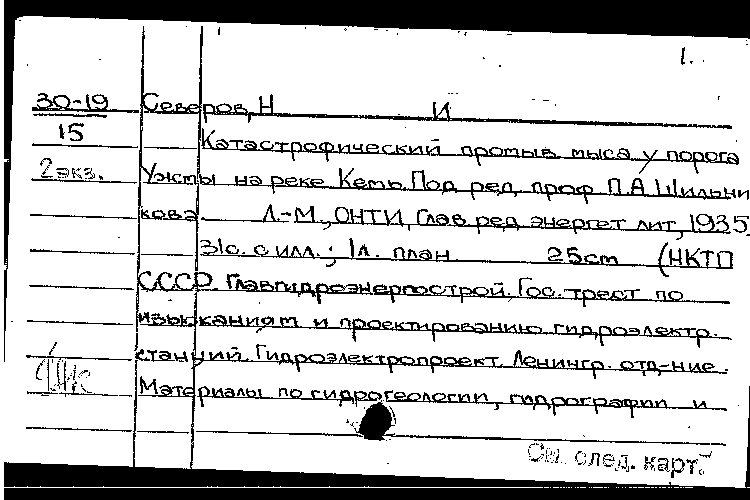 1.
30-19 Северов, Н И
15 Катастрофический промыв мыса у порога
2 экз. Ужмы на реке Кемь. Под ред. проф П.А. Шильни
кова. Л.-М., ОНТИ, Глав ред энергет лит, 1935
31с. с илл.; 1л. план 25см (НКТП
СССР. Главгидроэнергострой, Гос. трест по
изысканиям и проектированию гидроэлектр.
станций. Гидроэлектропроект. Ленингр. отд-ние.
Материалы по гидрогеологии, гидрографии и
См. след. карт.